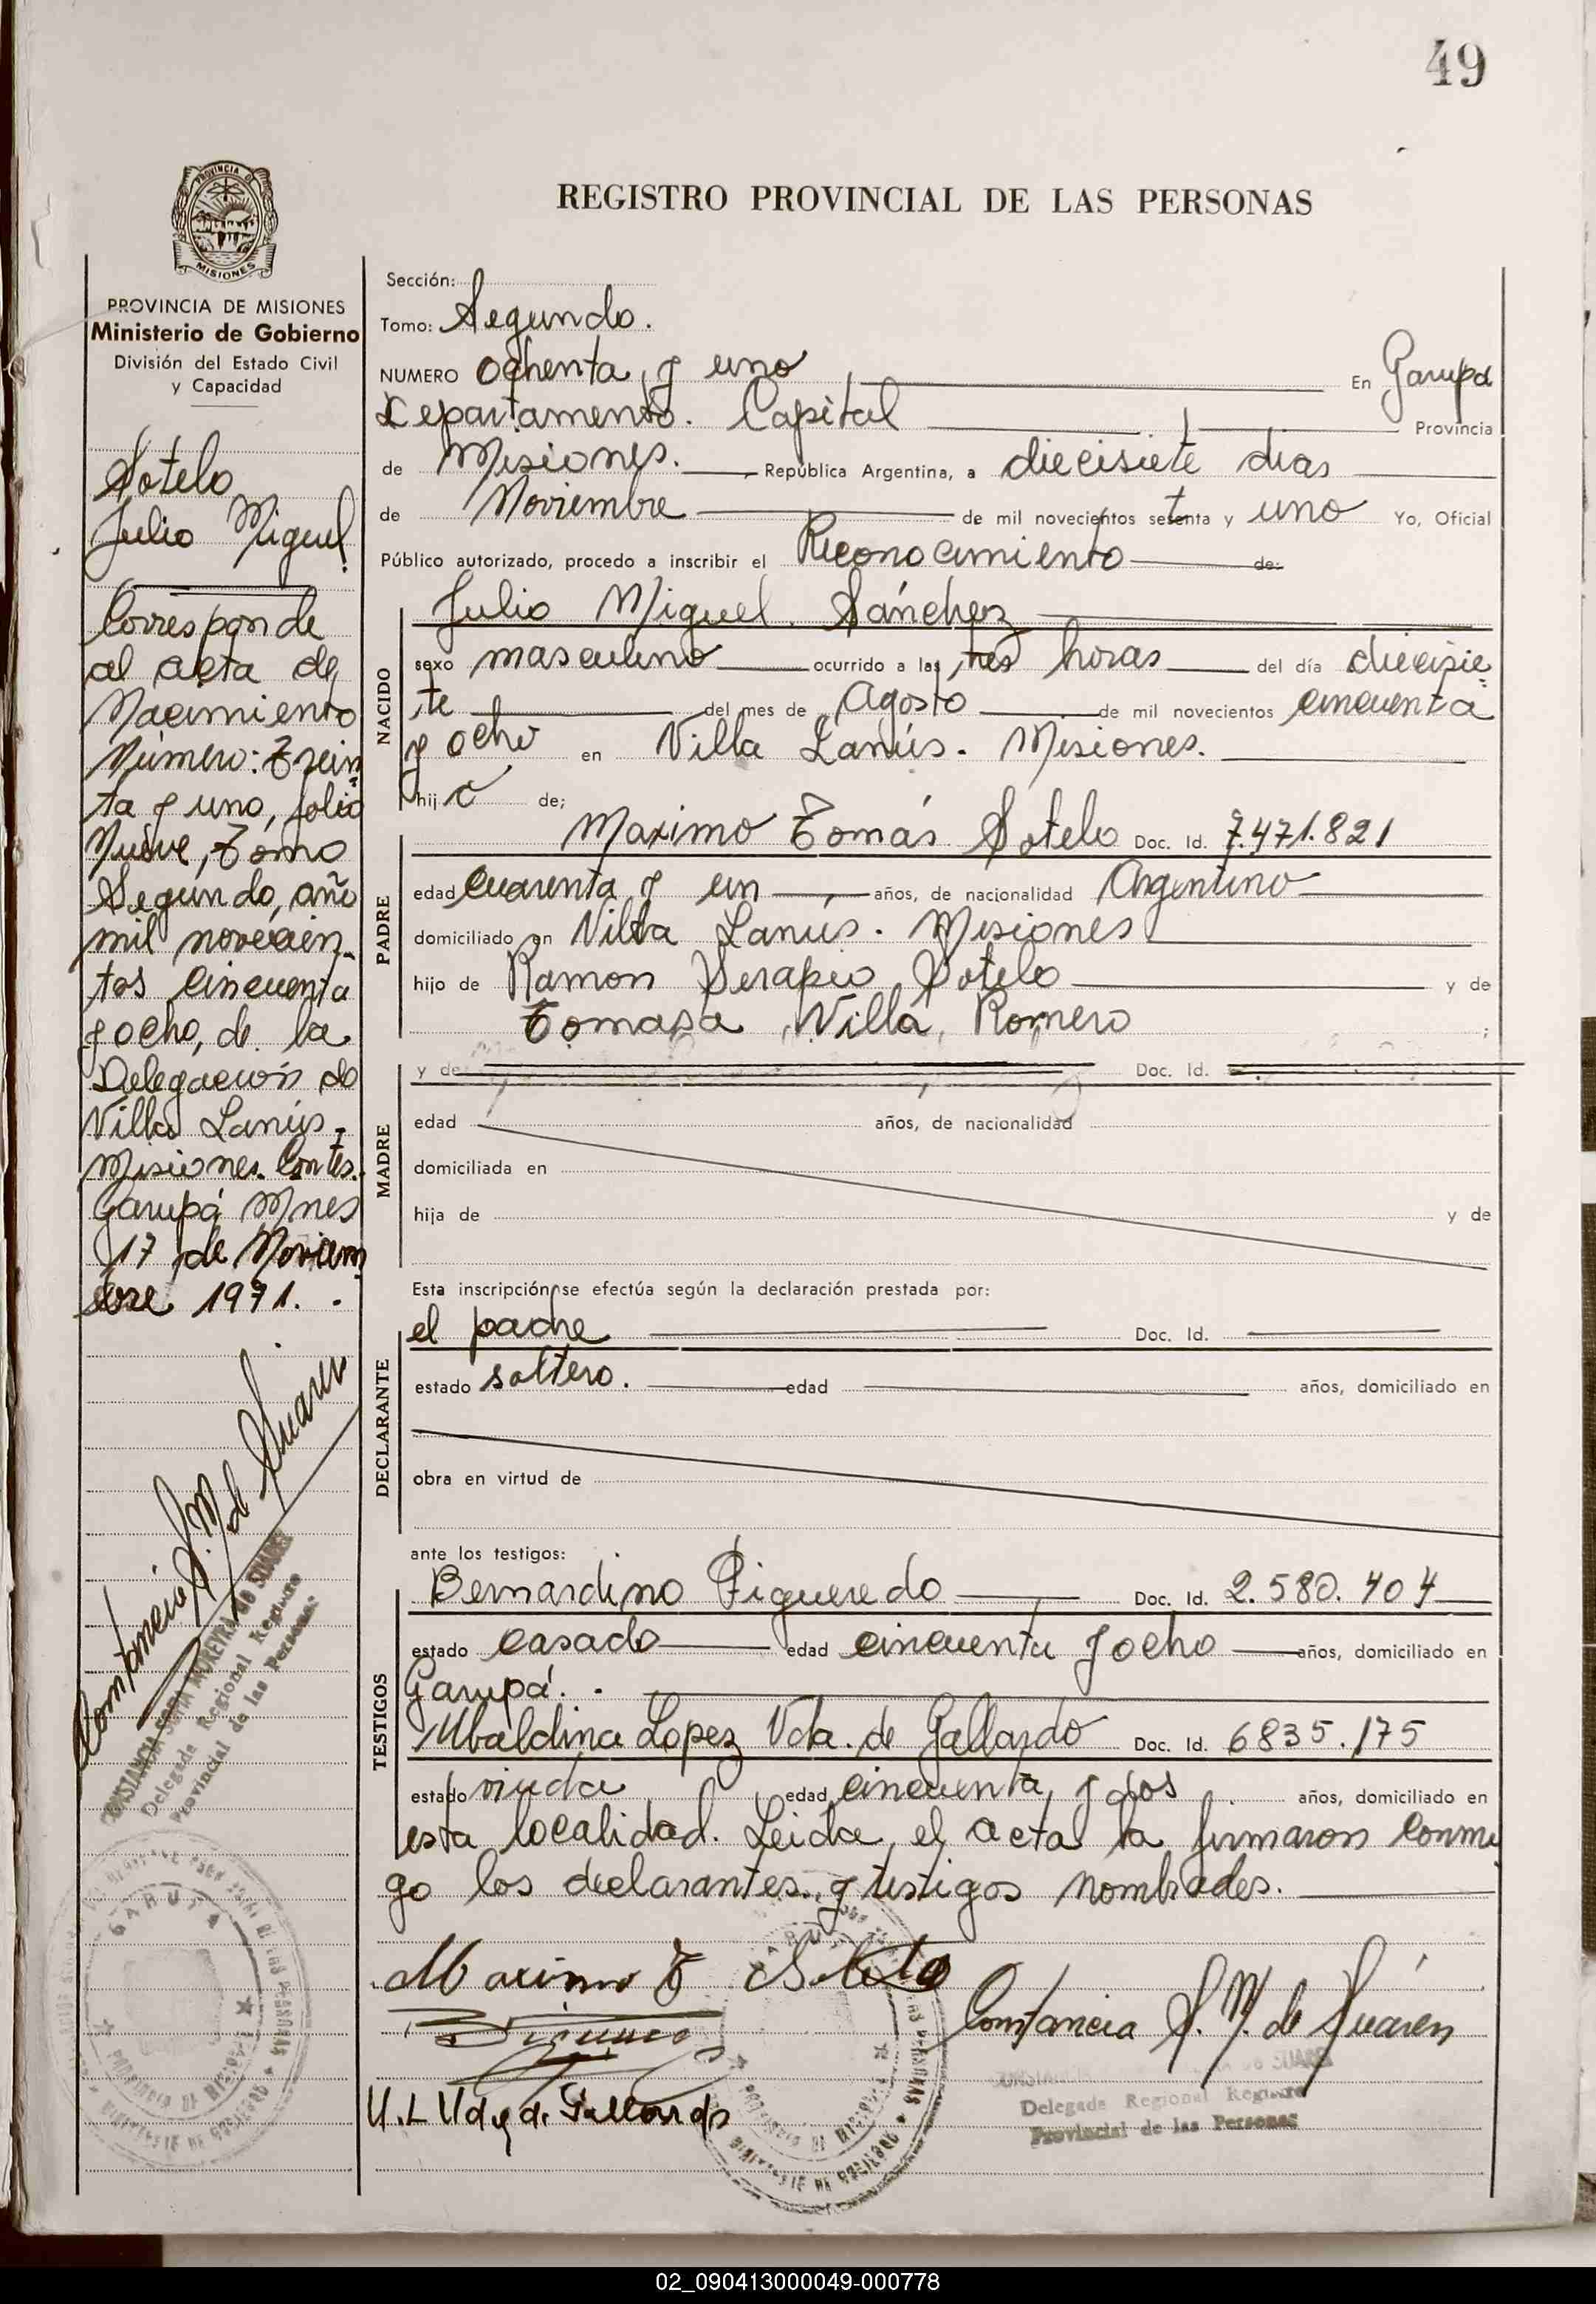 49
PROVINCIA DE
MISIONES
REGISTRO PROVINCIAL DE LAS PERSONAS
PROVINCIA DE MISIONES
Ministerio de Gobierno
División del Estado Civil
y Capacidad
Sotelo
Julio Miguel
Corresponde
al acta de
Nacimiento
Número: Trein
ta y uno, folio
Nueve, Tomo
Segundo, año
mil novecien
tos cincuenta
y ocho, de la
Delegación de
Villa Lanús-
Misiones. Contes.
Garupá Mnes
17 de Noviem
bre 1971. .
Constancia S. M. de Suarez
CONSTANCIA SOFIA MOREIRA DE SUAREZ
Delegada Regional Registro
Provincial de las Personas
GARUPA
Sección:
Tomo: Segundo.
NUMERO ochenta y uno En Garupá
Departamento. Capital Provincia
de Misiones. República Argentina, a diecisiete dias
de Noviembre de mil novecientos setenta y uno Yo, Oficial
Público autorizado, procedo a inscribir el Reconocimiento de:
NACIDO
Julio Miguel Sánchez
sexo masculino ocurrido a las tres horas del día diecisie
te del mes de Agosto de mil novecientos cincuenta
y ocho en Villa Lanús. Misiones.
hij o de;
PADRE
Maximo Tomás Sotelo Doc. Id. 7.471.821
edad cuarenta y un años, de nacionalidad Argentino
domiciliado en Villa Lanús. Misiones
hijo de Ramon Serapio Sotelo y de
Tomasa Villa Romero ;
MADRE
y de Doc. Id.
edad años, de nacionalidad
domiciliada en
hija de y de
Esta inscripción se efectúa según la declaración prestada por:
DECLARANTE
el padre Doc. Id.
estado soltero. edad años, domiciliado en
obra en virtud de
ante los testigos:
TESTIGOS
Bernardino Figueredo Doc. Id. 2.580.404
estado casado edad cincuenta y ocho años, domiciliado en
Garupá. .
Ubaldina Lopez Vda. de Gallardo Doc. Id. 6835.175
estado viuda edad cincuenta y dos años, domiciliado en
esta localidad. Leida el acta la firmaron conmi
go los declarantes y testigos nombrados.
Maximo T Sotelo
Constancia S. M. de Suárez
U. L Vda de Gallardo
Delegada Regional Registro
Provincial de las Personas
02_090413000049-000778